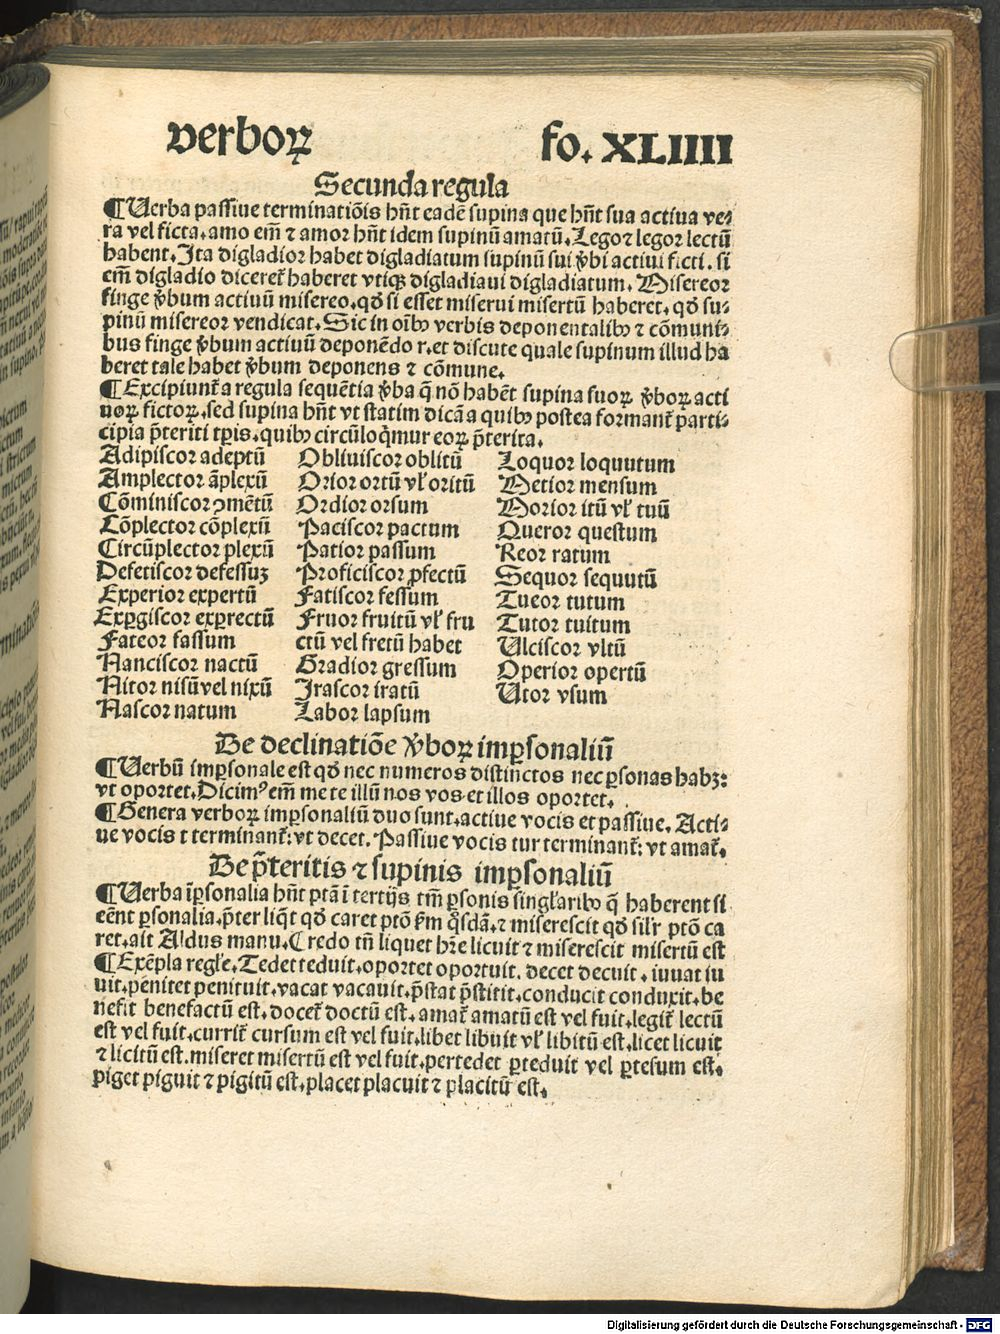 verboꝝ fo. XLIIII
Secunda regula
¶Uerba passiue terminatiōis hn̄t eadē supina que hn̄t sua actiua ve⸗
ra vel ficta.amo em̄ ⁊ amor hn̄t idem supinū amatū.Lego⁊ legor lectū
habent.Ita digladior habet digladiatum supinū sui ꝟbi actiui ficti.si
em̄ digladio diceret᷑ haberet vtiqꝫ digladiaui digladiatum. Misereor
finge ꝟbum actiuū misereo.qđ si esset miserui misertū haberet.qđ su⸗
pinū misereor vendicat.Sic in oībꝰ verbis deponentalibꝰ ⁊ cōmuni⸗
bus finge ꝟbum actiuū deponēdo r.et discute quale supinum illud ha
beret tale habet ꝟbum deponens ⁊ cōmune.
¶Excipiunt᷑ a regula sequētia ꝟba q̄ nō habēt supina suoꝝ ꝟboꝝ acti
uoꝝ fictoꝝ.sed supina hn̄t vt statim dicā a quibꝰ postea formant᷑ parti⸗
cipia p̄teriti tp̄is.quibꝰ circūloq̄mur eoꝝ p̄terita.
Adipiscor adeptū
Amplector āplexū
Cōminiscor ꝯmētū
Cōplector cōplexū
Circūplector plexū
Defetiscor defessuꝫ
Experior expertū
Exꝑgiscor exꝑrectū
Fateor fassum
Nanciscor nactū
Nitor nisū vel nixū
Nascor natum
Obliuiscor oblitū
Orior ortū vl̕ oritū
Ordior orsum
Paciscor pactum
Patior passum
Proficiscor ꝓfectū
Fatiscor fessum
Fruor fruitū vl̕ fru
ctū vel fretū habet
Gradior gressum
Irascor iratū
Labor lapsum
Loquor loquutum
Metior mensum
Morior itū vl̕ tuū
Queror questum
Reor ratum
Sequor sequutū
Tueor tutum
Tutor tuitum
Ulciscor vltū
Operior opertū
Utor vsum
De declinatiōe ꝟboꝝ imꝑsonaliū
¶Uerbū imꝑsonale est qđ nec numeros distinctos nec ꝑsonas habꝫ:
vt oportet.Dicimꝰ em̄ me te illū nos vos et illos oportet.
¶Genera verboꝝ imꝑsonaliū duo sunt.actiue vocis et passiue. Acti⸗
ue vocis t terminant᷑: vt decet. Passiue vocis tur terminant᷑: vt amat᷑.
De p̄teritis ⁊ supinis imꝑsonaliū
¶Uerba īꝑsonalia hn̄t ptā ī tertijs tm̄ ꝑsonis singl̕aribꝰ q̄ haberent si
eēnt ꝑsonalia.p̄ter liq̄t qđ caret ptō ẜm q̇sdā.⁊ miserescit qđ sil̕r ptō ca
ret.ait Aldus manu.Credo tn̄ liquet hr̄e licuit ⁊ miserescit misertū est
¶Exēpla regl̕e.Tedet teduit.oportet oportuit. decet decuit . iuuat iu
uit.penitet penituit.vacat vacauit.p̄stat p̄stitit.conducit conduxit.be
nefit benefactū est.docet᷑ doctū est.amat᷑ amatū est vel fuit.legit᷑ lectū
est vel fuit.currit᷑ cursum est vel fuit.libet libuit vl̕ libitū est.licet licuit
⁊ licitū est.miseret misertū est vel fuit.pertedet ꝑteduit vel ꝑtesum est.
piget piguit ⁊ pigitū est.placet placuit ⁊ placitū est.
Digitalisierung gefördert durch die Deutsche Forschungsgemeinschaft - DFG